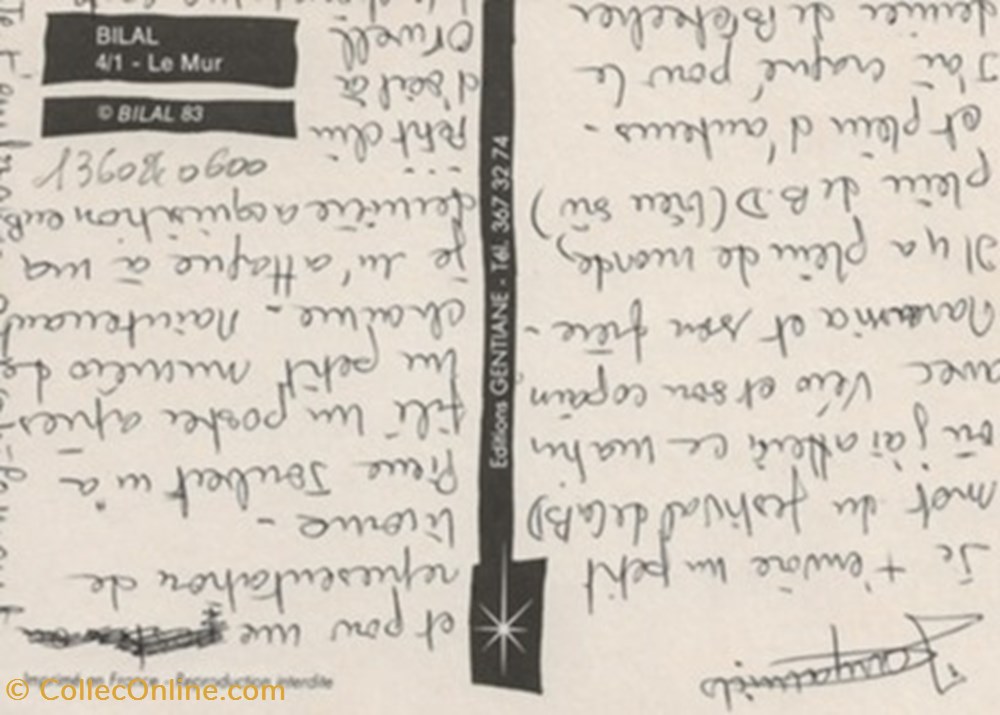 Je t'envoie un petit
mot du festival de la BD
où j'ai atterri ce matin
avec Véro et son copain
et son frère -
Il y a plein de monde,
plein de B.D (bien sûr)
et plein d'auteurs -
J'ai craqué pour le
dernier de
et pour une
représentation de
licorne -
Pierre Joubert m'a
filé un poster après
un petit numéro de
charme - Maintenant
je m'attaque à ma
dernière acquisition en B
...
petit clin
d'oeil à
Orwell
BILAL
4/1 - Le Mur
© BILAL 83
Editions GENTIANE - Tél. 367 32 74
Imprimé en France - Reproduction interdite
© CollecOnline.com